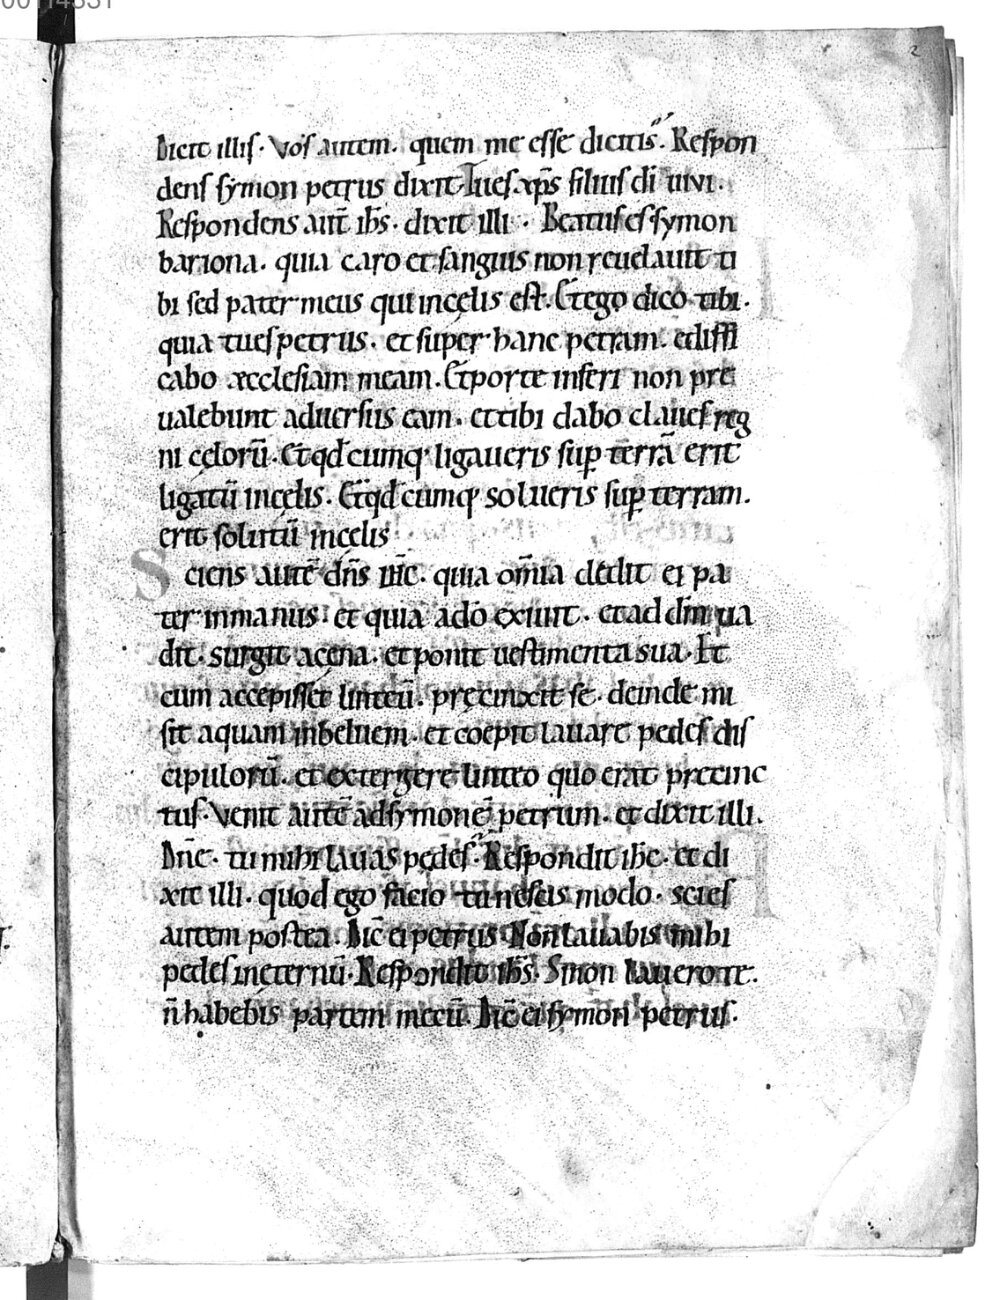 2
Dicit illis. Vos autem. quem me esse dicitis. Respon
dens symon petrus dixit Tu es xp̄s filius di uiui.
Respondens aut̄ ih̄s. dixit illi. Beatus es symon
bariona. quia caro et sanguis non reuelauit ti
bi sed pater meus qui in cęlis est. Et ego dico tibi.
quia tu es petrus. et super hanc petram. ediffi
cabo æcclesiam meam. Et porte inferi non pre
ualebunt aduersus eam. et tibi dabo claues reg
ni cęlorū. Et qd cumq; ligaueris sup terrā erit
ligatū in cęlis. Et qd cumq; solueris sup terram.
erit solutū in cęlis
Sciens autē dn̄s ih̄c. quia om̄ia dedit ei pa
ter in manus. et quia a dō exiuit. et ad dm̄ ua
dit. surgit a cęna. et ponit uestimenta sua. Et
cum accepisset linteū. pręcinxit se. deinde mi
sit aquam in peluem. et coepit lauare pedes dis
cipulorū. et extergere linteo quo erat precinc
tus. Venit autē ad symonē petrum. et dixit illi.
Dn̄e. tu mihi lauas pedes. Respondit ih̄c. et di
xit illi. quod ego facio tu nescis modo. scies
autem postea. Dic̄ ei petrus Non lauabis mihi
pedes in ęternū. Respondit ih̄s. Si non lauero te.
n̄ habebis partem mecū. Dic̄ ei symon petrus.